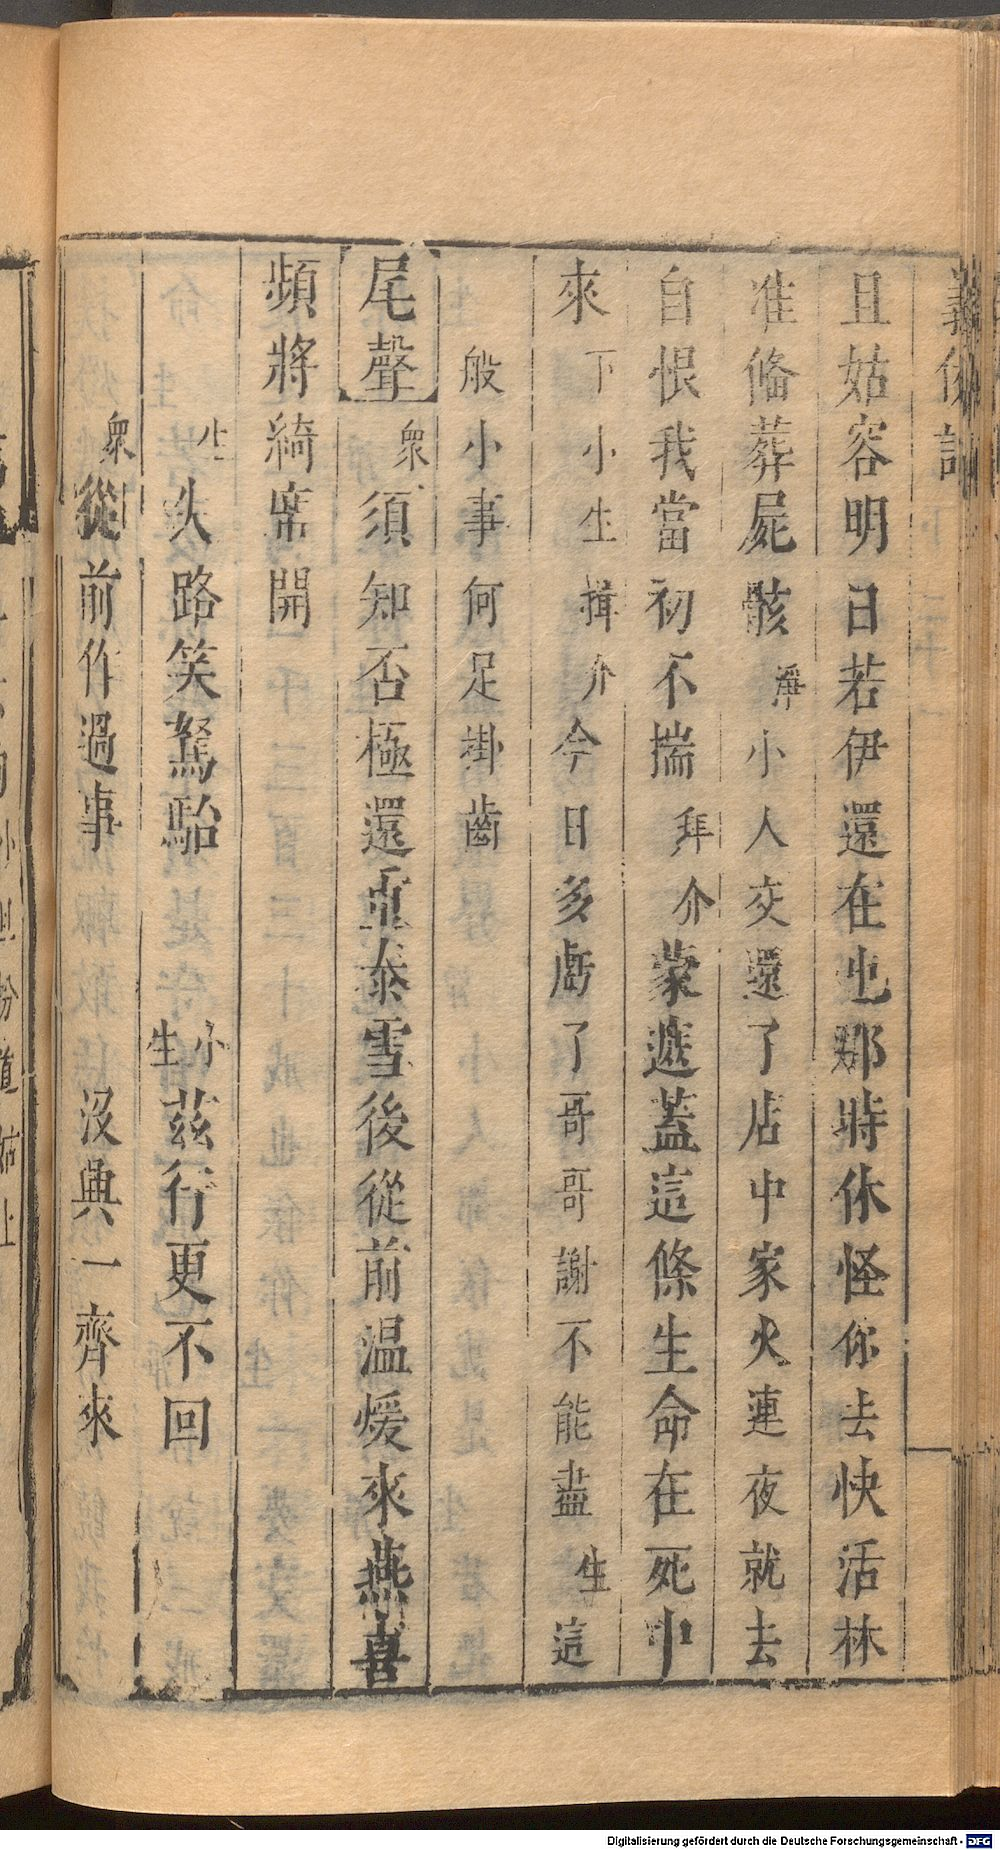 義俠記
且姑容明日若伊還在也那時休怪你去快活林
准俻葬屍骸淨小人交還了店中家火連夜就去
自恨我當初不揣拜介蒙遮蓋這條生命在死中
來下小生揖介今日多虧了哥哥謝不能盡生這
般小事何足掛齒
尾聲衆須知否極還重泰雪後從前温煖來燕喜
頻將綺席開
生 头路笑駑駘 小生 茲行更不回
衆 從前作過事 沒興一齊來
Digitalisierung gefördert durch die Deutsche Forschungsgemeinschaft - DFG